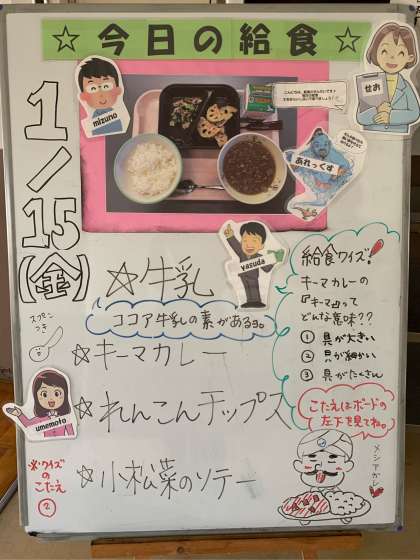 ☆今日の給食☆
せお
mizuno
あれっくす
1/15(金)
yasuda
☆牛乳
ココア牛乳の素があるヨ。
スプーンつき
☆キーマカレー
☆れんこんチップス
umemoto
☆小松菜のソテー
※クイズ
の
こたえ
②
給食クイズ!
キーマカレーの
『キーマ』って
どんな意味??
① 具が大きい
② 具が細かい
③ 具がたくさん
こたえはボードの
左下を見てね。